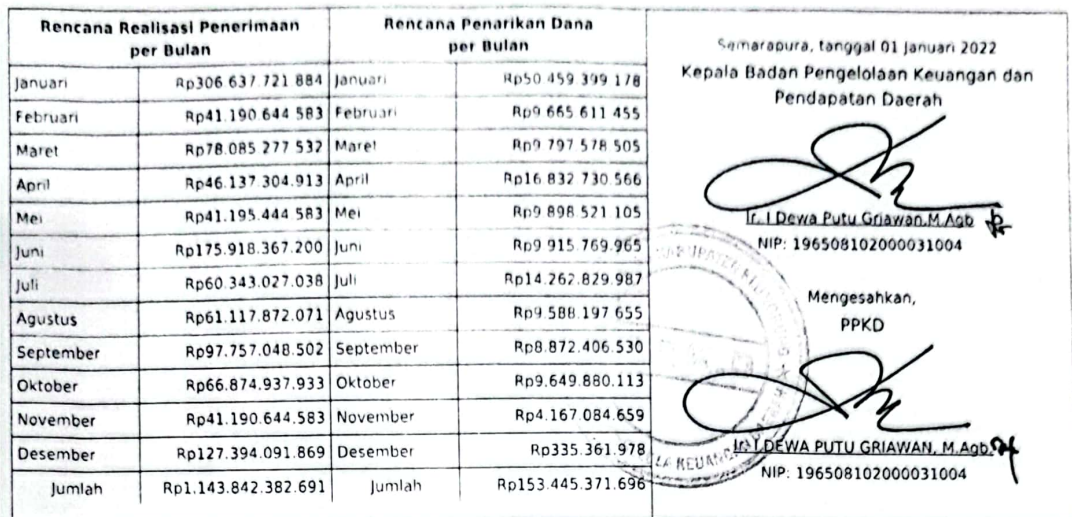 Rencana Realisasi Penerimaan per Bulan
Rencana Penarikan Dana per Bulan
Januari Rp306 637 721 884 Januari Rp50 459 399 178
Februari Rp41.190 644 583 Februari Rp9 665 611 455
Maret Rp78.085 277 532 Maret Rp9 797 578 505
April Rp46.137.304.913 April Rp16 832 730.566
Mei Rp41.195.444 583 Mei Rp9 898.521.105
Juni Rp175.918.367.200 Juni Rp9 915.769.965
Juli Rp60.343.027.038 Juli Rp14.262.829.987
Agustus Rp61.117.872.071 Agustus Rp9.588.197 655
September Rp97.757.048.502 September Rp8.872.406.530
Oktober Rp66.874.937.933 Oktober Rp9.649.880.113
November Rp41.190.644.583 November Rp4.167.084.659
Desember Rp127.394.091.869 Desember Rp335.361.978
Jumlah Rp1.143.842.382.691 Jumlah Rp153.445.371.696
Semarapura, tanggal 01 Januari 2022
Kepala Badan Pengelolaan Keuangan dan
Pendapatan Daerah
Ir. I Dewa Putu Griawan,M.Agb
NIP: 196508102000031004
Mengesahkan,
PPKD
Ir. I DEWA PUTU GRIAWAN, M.Agb.
NIP: 196508102000031004